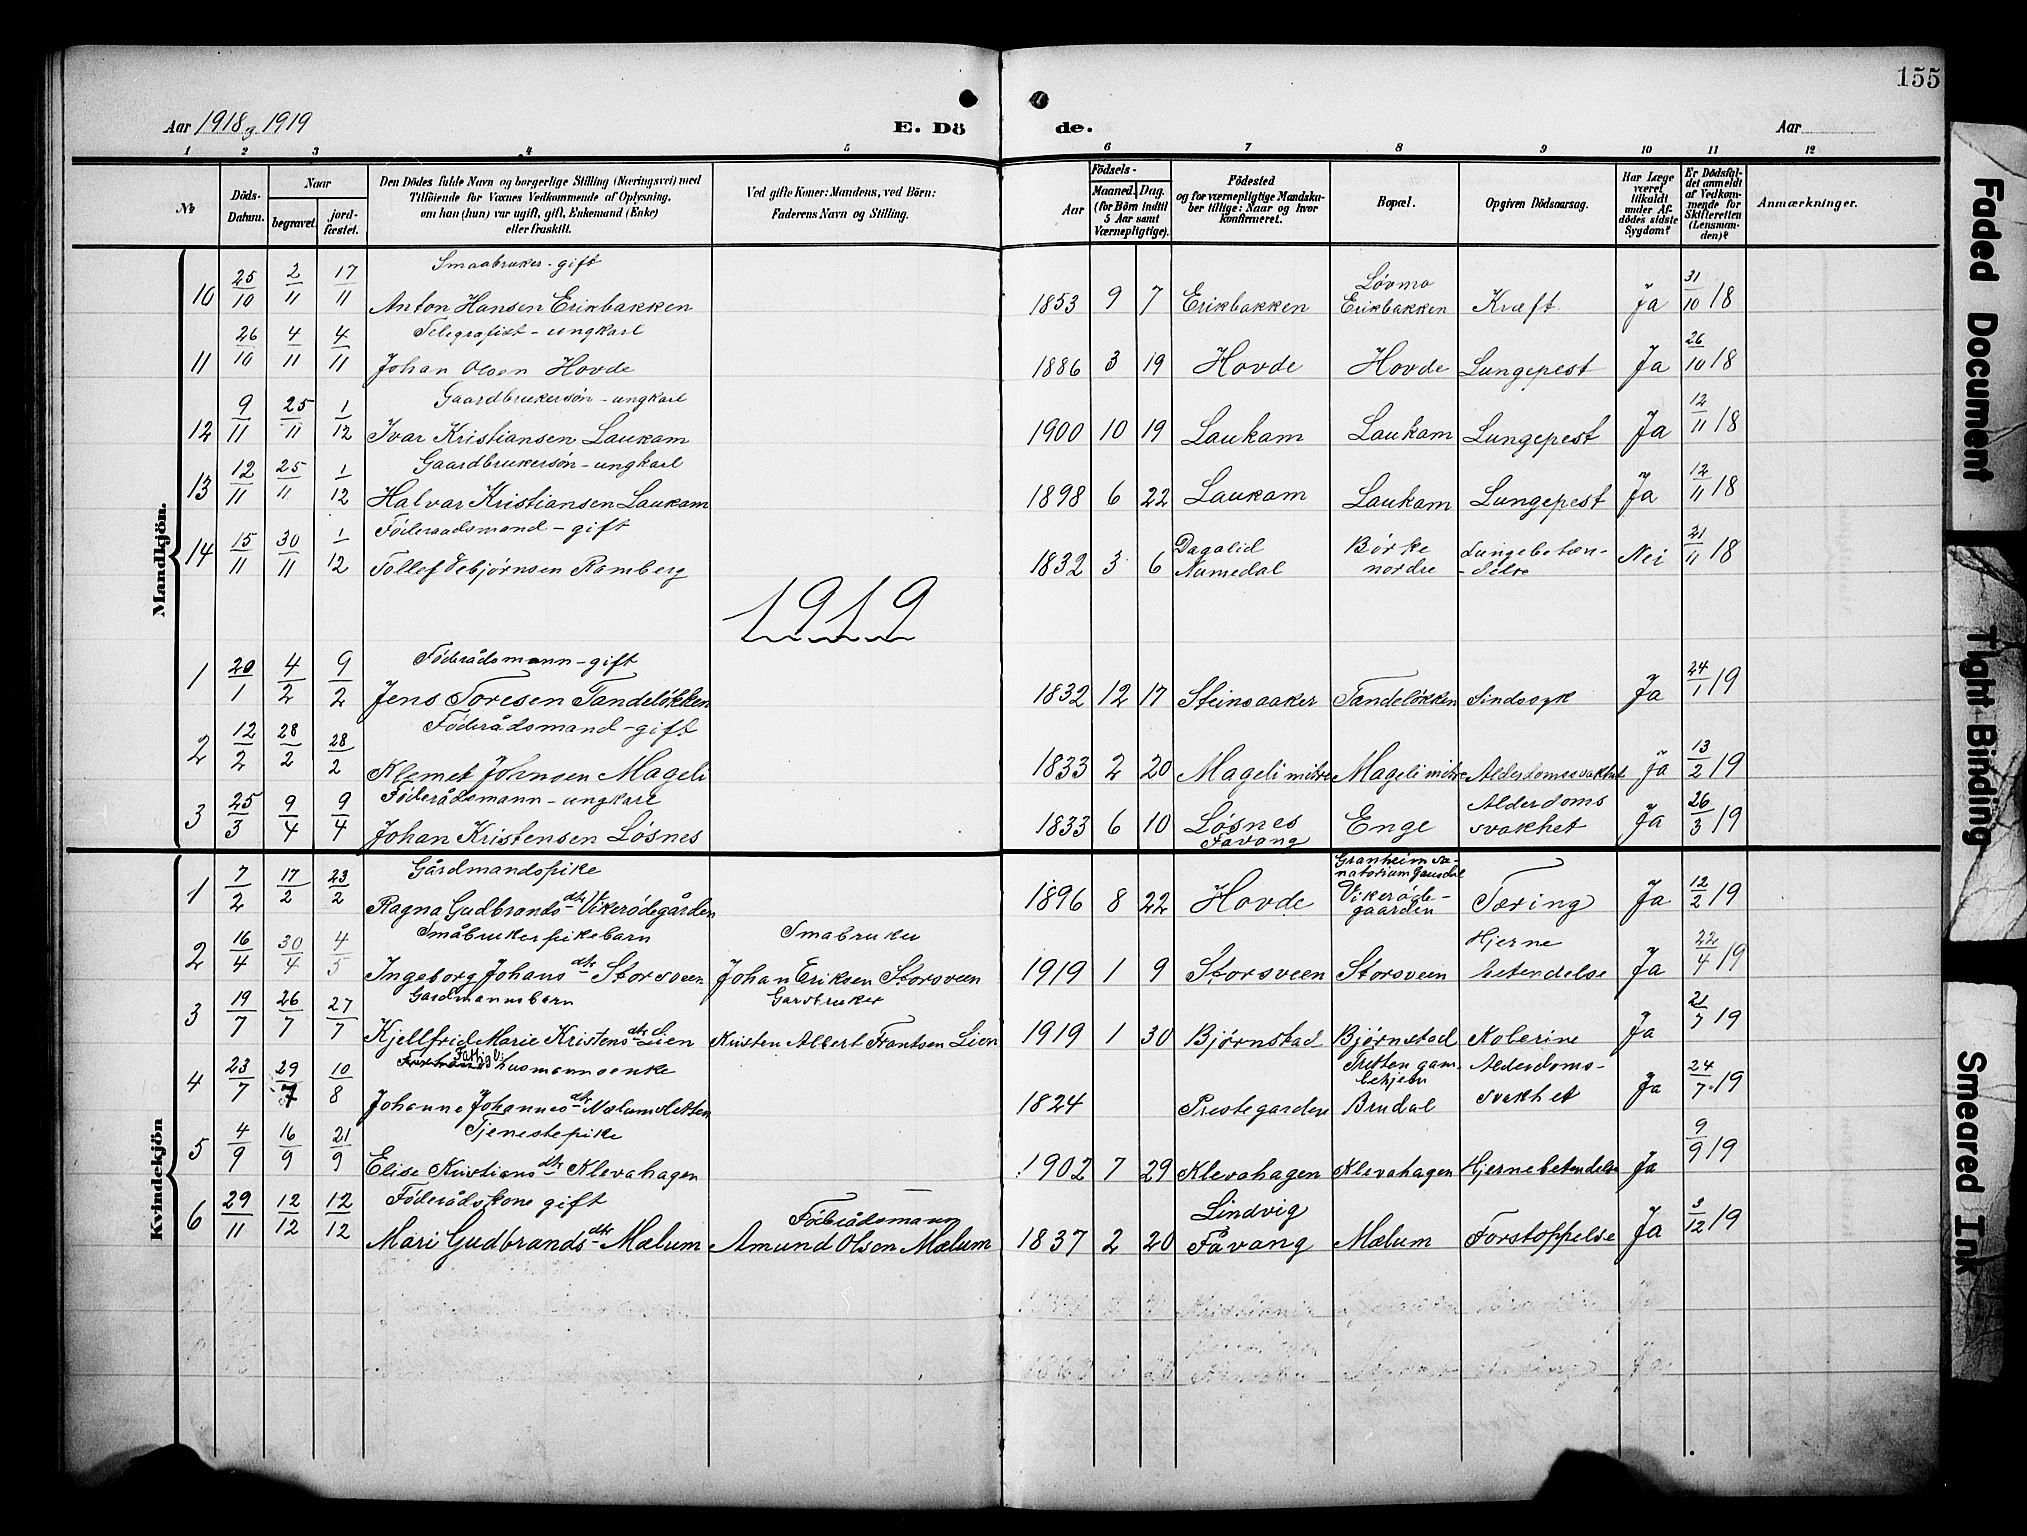 155
Aar 1918 og 1919
E. Dö
de.
Aar
1 2 3 4 5 6 7 8 9 10 11 12
№
Döds-Datum.
Naar
begravet.
jord-fæstet.
Den Dödes fulde Navn og borgerlige Stilling (Næringsvei) med
Tilföiende for Voxnes Vedkommende af Oplysning,
om han (hun) var ugift, gift, Enkemand (Enke)
eller fraskilt.
Ved gifte Koner: Mandens, ved Börn:
Faderens Navn og Stilling.
Födsels-
Aar
Maaned. Dag.
(for Börn indtil
5 Aar samt
Værnepligtige).
Födested
og for værnepligtige Mandska-
ber tillige: Naar og hvor
konfirmeret.
Bopæl.
Opgiven Dödsaarsag.
Har Læge
været
tilkaldt
under Af-
dödes sidste
Sygdom?
Er Dödsfal-
det anmeldt
af Vedkom-
mende for
Skifteretten
(Lensman-
den)?
Anmærkninger.
Mandkjön.
Smaabruker - gift Løvmo
10 25/10 2/11 17/11 Anton Hansen Erikbakken 1853 9 7 Erikbakken Erikbakken Kræft. Ja 31/10 18
Telegrafist - ungkarl
11 26/10 4/11 4/11 Johan Olsen Hovde 1886 3 19 Hovde Hovde Lungepest Ja 26/10 18
Gaardbrukersøn - ungkarl
12 9/11 25/11 1/12 Ivar Kristiansen Laukam 1900 10 19 Laukam Laukam Lungepest Ja 12/11 18
Gaardbrukersøn - ungkarl
13 12/11 25/11 1/12 Halvar Kristiansen Laukam 1898 6 22 Laukam Laukam Lungepest Ja 12/11 18
Föderaadsmand - gift Dagalid Børke Lungebetæn-
14 15/11 30/11 1/12 Tollef Ramberg 1832 3 6 Numedal nordre -delse Nei 21/11 18
1919
Föderådsmann - gift
1 20/1 4/2 9/2 Jens Toresen Tandeløkken 1832 12 17 Steinsaaker Tandeløkken Sindssyk Ja 24/1 19
Föderådsmand - gift
2 12/2 28/2 28/2 Klemet Johnsen Mageli 1833 2 20 Mageli midtre Mageli midtre Alderdomssvakhet Ja 13/2 19
Föderådsmann - ungkarl Alderdoms
3 25/3 9/4 9/4 Johan Kristensen Løsnes 1833 6 10 Løsnes Enge svakhet Ja 26/3 19
Fåvang
Kvindekjön
Gårdmandspike Granheim sa-
natorium Gausdal
1 7/2 17/2 23/2 Ragna Gudbrandsdtr Vikerødegården 1896 8 22 Hovde Vikerøde- Tæring Ja 12/2 19
gaarden
Småbrukerpikebarn Smabruker Hjerne
2 16/4 30/4 4/5 Ingeborg Johansdtr Storsveen Johan Eriksen Storsveen 1919 1 9 Storsveen Storsveen betendelse Ja 22/4 19
Gardmannsbarn Gardbruker
3 19/7 26/7 27/7 Kjellfrid Marie Kristensdtr Lien Kristen Albert Frantsen Lien 1919 1 30 Bjørnstad Bjørnstad Kolerine Ja 21/7 19
Fattig husmannsenke Tretten gam- Alderdoms-
lehjem
4 23/7 29/7 10/8 Johanne Johannesdtr Mælumsletten 1824 Prestegarden Brudal svakhet Ja 24/7 19
Tjenestepike
5 4/9 16/9 21/9 Elise Kristiansdtr Klevahagen 1902 7 29 Klevahagen Klevahagen Hjernebetendelse Ja 9/9 19
Föderådskone gift Föderådsmann Lindvig
6 29/11 12/12 12/12 Mari Gudbrandsdtr Mælum Amund Olsen Mælum 1837 2 20 Fåvang Mælum Forstoppelse Ja 3/12 19
Faded Document
Tight Binding
Smeared Ink